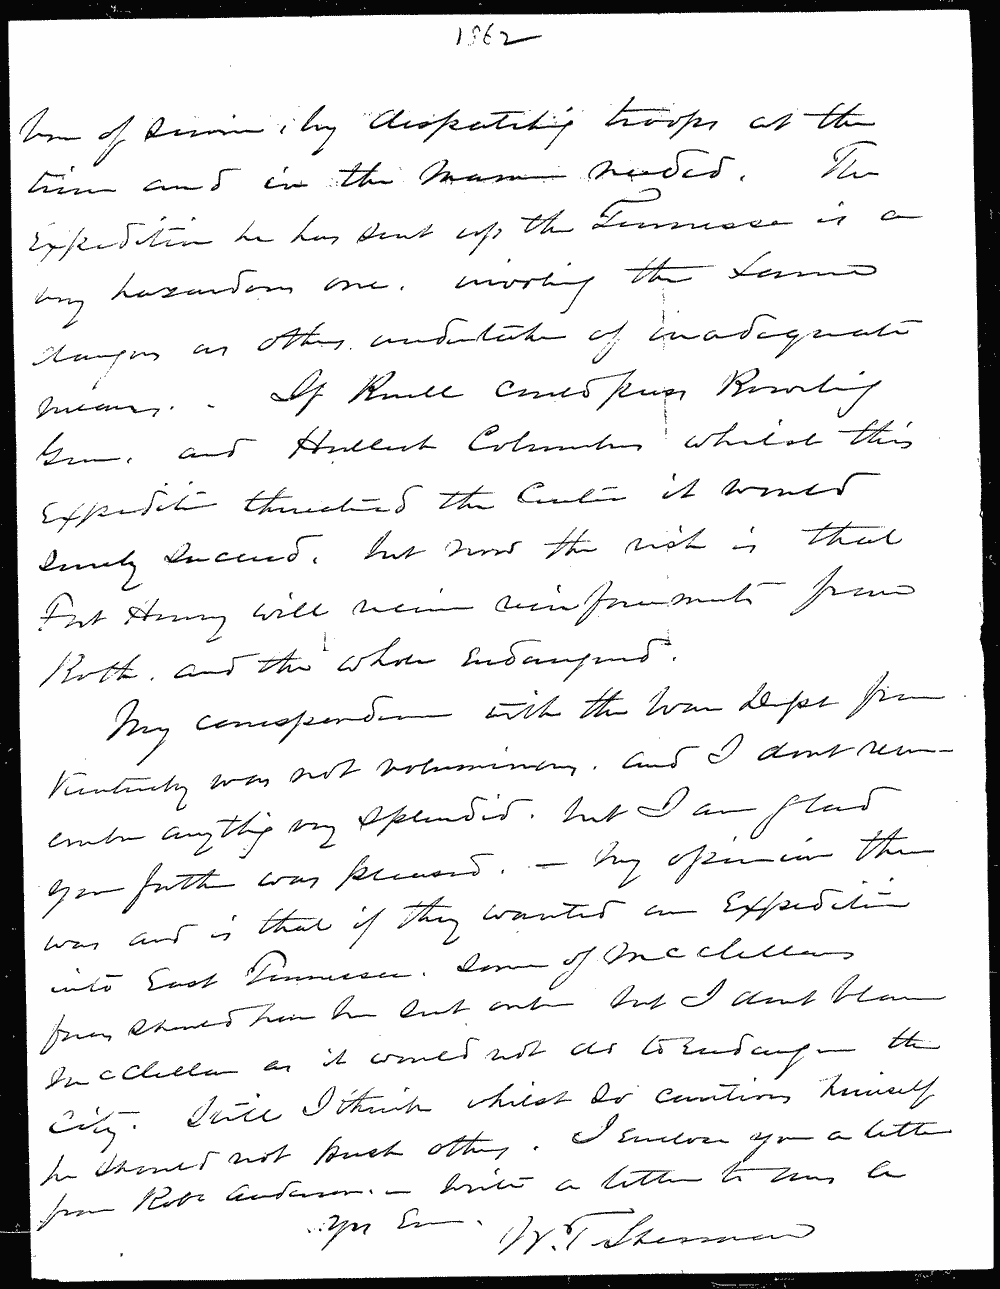 1862
be of service, by dispatching troops at the
time and in the manner needed. The
Expedition he has sent up the Tennessee is a
very hazardous one, involving the same
dangers as others undertaken of inadequate
means. - If Buell could pass Bowling
Green, and Halleck Columbus whilst this
Expedition threatened the Center it would
surely succeed, but now the risk is that
Fort Henry will receive reinforcements from
Both, and the whole endangered.
My correspondence with the War Dept from
Kentucky was not voluminous, and I dont rem-
ember anything very splendid, but I am glad
your father was pleased. - My opinion then
was and is that if they wanted an Expedition
into East Tennessee, some of McClellans
forces should have been sent but I dont blame
McClellan as it would not do to Endanger the
City. Still I think whilst so cautious himself
he should not push others. I Enclose you a letter
from Robt Anderson. - write a letter to
Yrs Ever.
W. T. Sherman